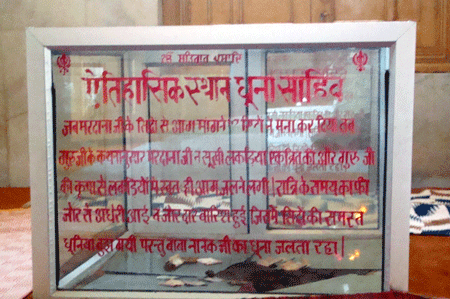 ऐतिहासिक स्थान धूना साहिब
जब मरदाना जी के सिद्धों से आग मांगने पर सिद्धों ने मना कर दिया तब
गुरु जी के कथानुसार मरदाना जी ने सूखी लकड़ियां एकत्रित की और गुरु जी
की कृपा से लकड़ियों में स्वत ही आग जलने लगी। रात्रि के समय काफी
जोर से आंधेरी आई व जोर दार बारिश हुई जिसमें सिद्धों की समस्त
धुनियां बुझ गयी परन्तु बाबा नानक जी का धूना जलता रहा।